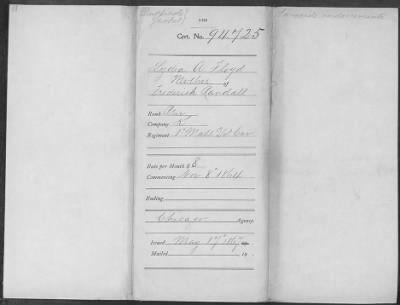 Cert. No. 94725
Lydia A Floyd
Mother of
Frederick Randall
Rank
Company K
Regiment 1" Mass Vol Cav
Rate per Month $ 8
Commencing Nov 8" 1864
Ending
Chicago Agency.
Issued May 17" 1867
Mailed 18